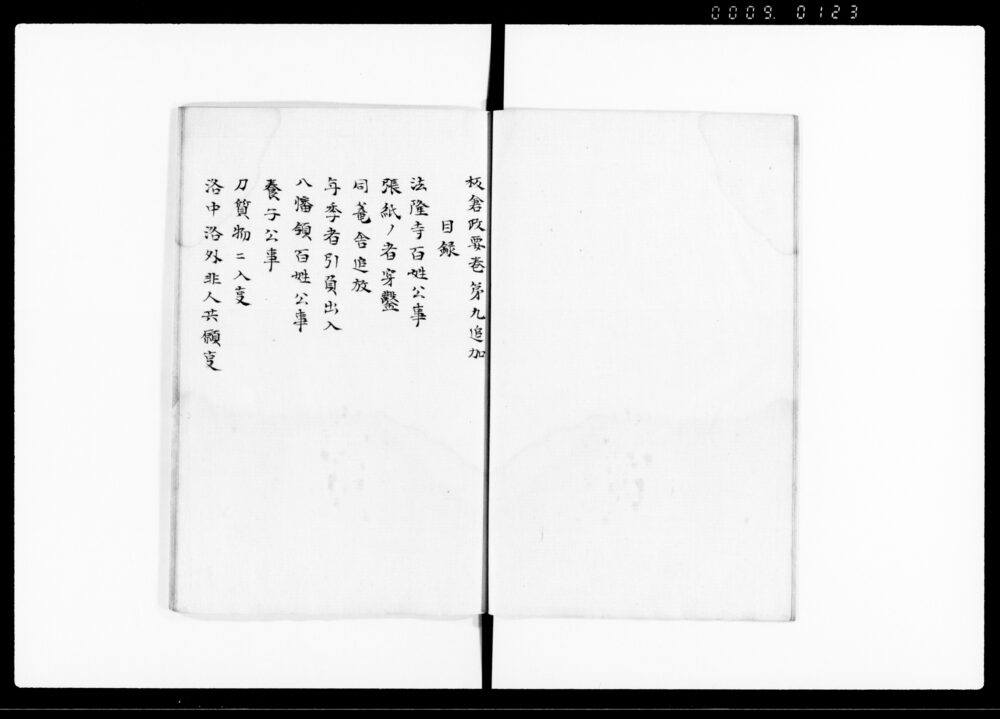 0009. 0123
板倉政要巻第九追加
目録
法隆寺百姓公事
張紙ノ者穿鑿
同菴舎追放
年季者引負出入
八幡領百姓公事
養子公事
刀質物ニ入事
洛中洛外非人共願事